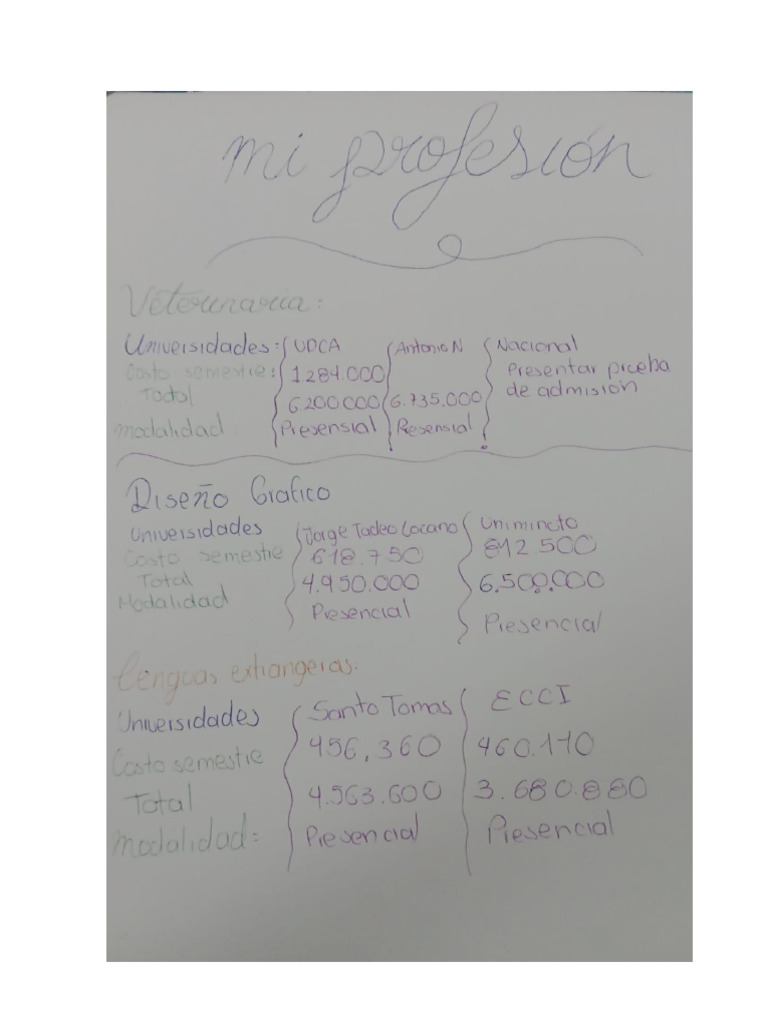 mi profesión
Veterinaria:
Universidades: UDCA Antonio N Nacional
Costo semestre: 1.284.000 Presentar prueba
Total 6.200.000 6.735.000 de admisión
modalidad Presensial Presensial
Diseño Grafico
Universidades Jorge Tadeo Locano Uniminuto
Costo semestre 618.750 812.500
Total 4.950.000 6.500.000
Modalidad Presencial Presencial
Lenguas extrangeras:
Universidades Santo Tomas ECCI
Costo semestre 456,360 460.110
Total 4.563.600 3.680.880
modalidad: Presencial Presencial